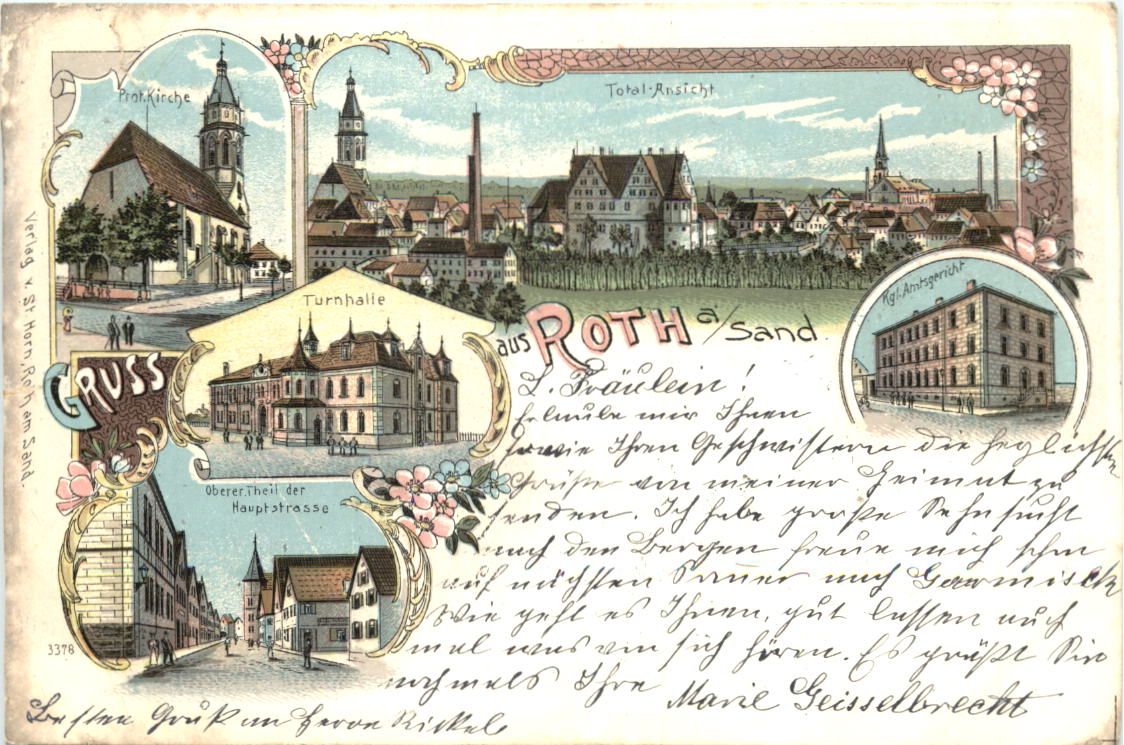 Prot. Kirche
Total-Ansicht
Turnhalle
Kgl. Amtsgericht
GRUSS
aus ROTH a/Sand.
Oberer Theil der
Hauptstrasse
Verlag v. St. Horn, Roth am Sand.
3378
L. Fräulein!
Erlaube mir Ihnen
sowie Ihren Geschwistern die herzlichsten
Grüße von meiner Heimat zu
senden. Ich habe große Sehnsucht
nach den Bergen freue mich schon
auf nächsten Sommer nach Garmisch
Wie geht es Ihnen, gut lassen auch
mal was von sich hören. Es grüßt Sie
nochmals Ihre Marie Geisselbrecht
Besten Gruß an Herrn